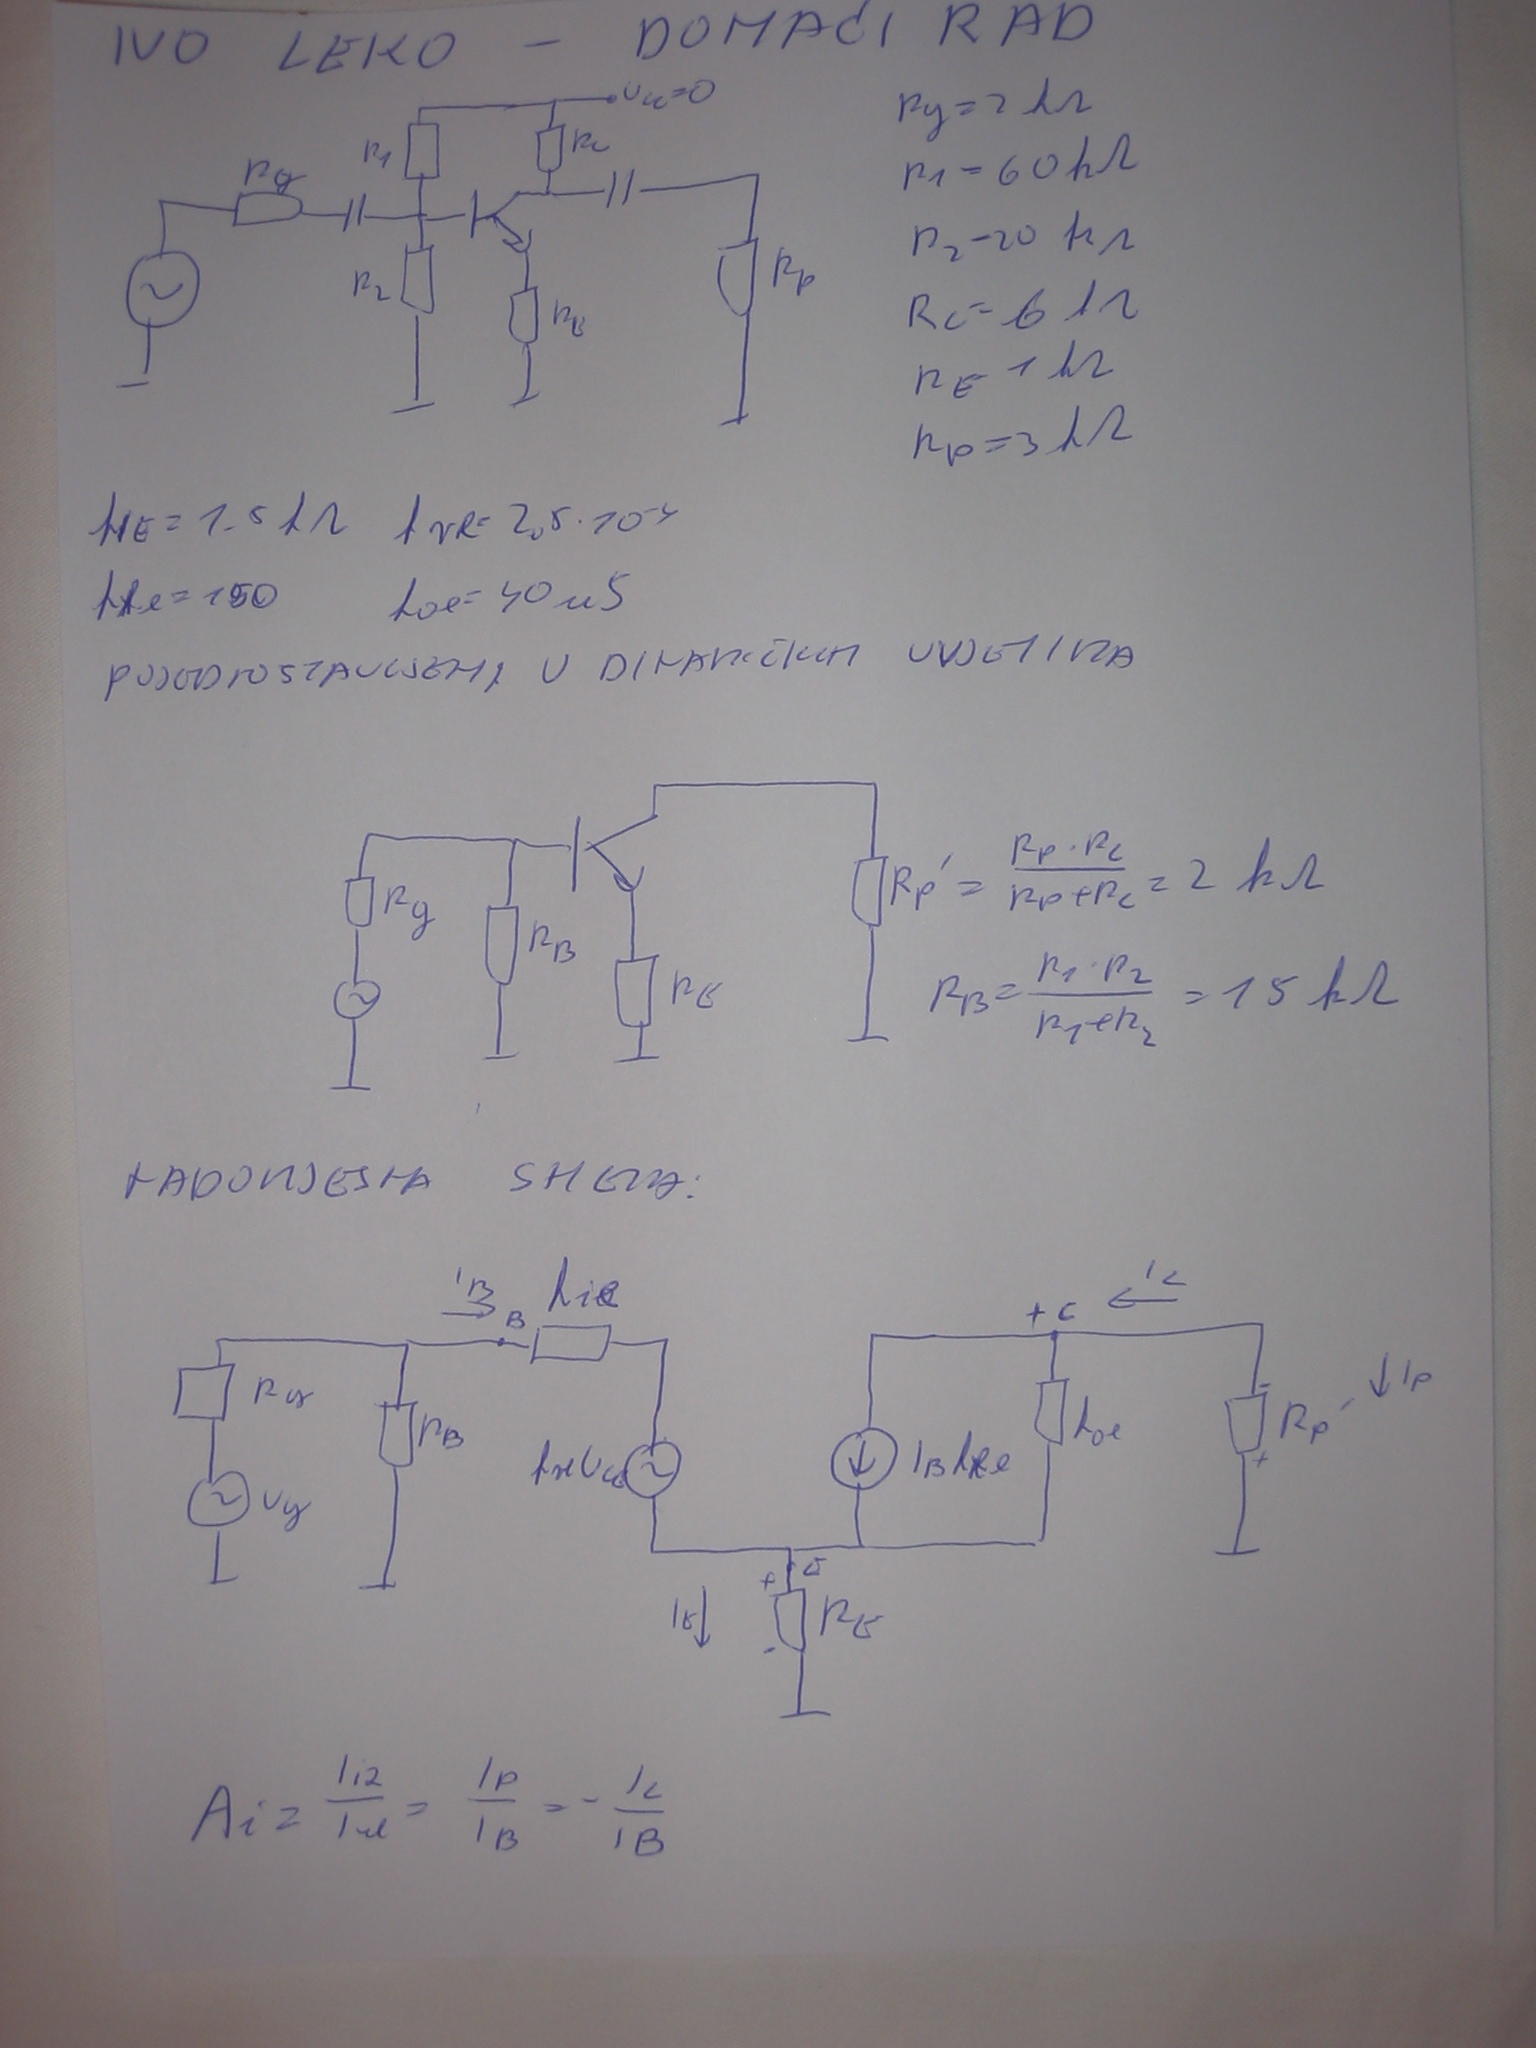 IVO LEKO - DOMAĆI RAD
Ucc=0
Rg
R1
Rc
R2
RE
Rp
Rg=2 kΩ
R1=60kΩ
R2=20 kΩ
Rc=6 kΩ
RE 1 kΩ
Rp=3 kΩ
hIE=1.5 kΩ hre=2,5·10-4
hfe=150 hoe=40 uS
POJEDNOSTAVLJENI U DINAMIČKIM UVJETIMA
Rg
RB
RE
Rp' = Rp·Rc / Rp+Rc = 2 kΩ
RB = R1·R2 / R1+R2 = 15 kΩ
NADOMJESNA SHEMA:
IB
B
hie
Rg
Ug
RB
hre Uce
IB hfe
+ C
IC
hoe
Rp'
Ip
-
+
E
+
-
IE
RE
Ai = Iiz / Iul = Ip / IB = - Ic / IB